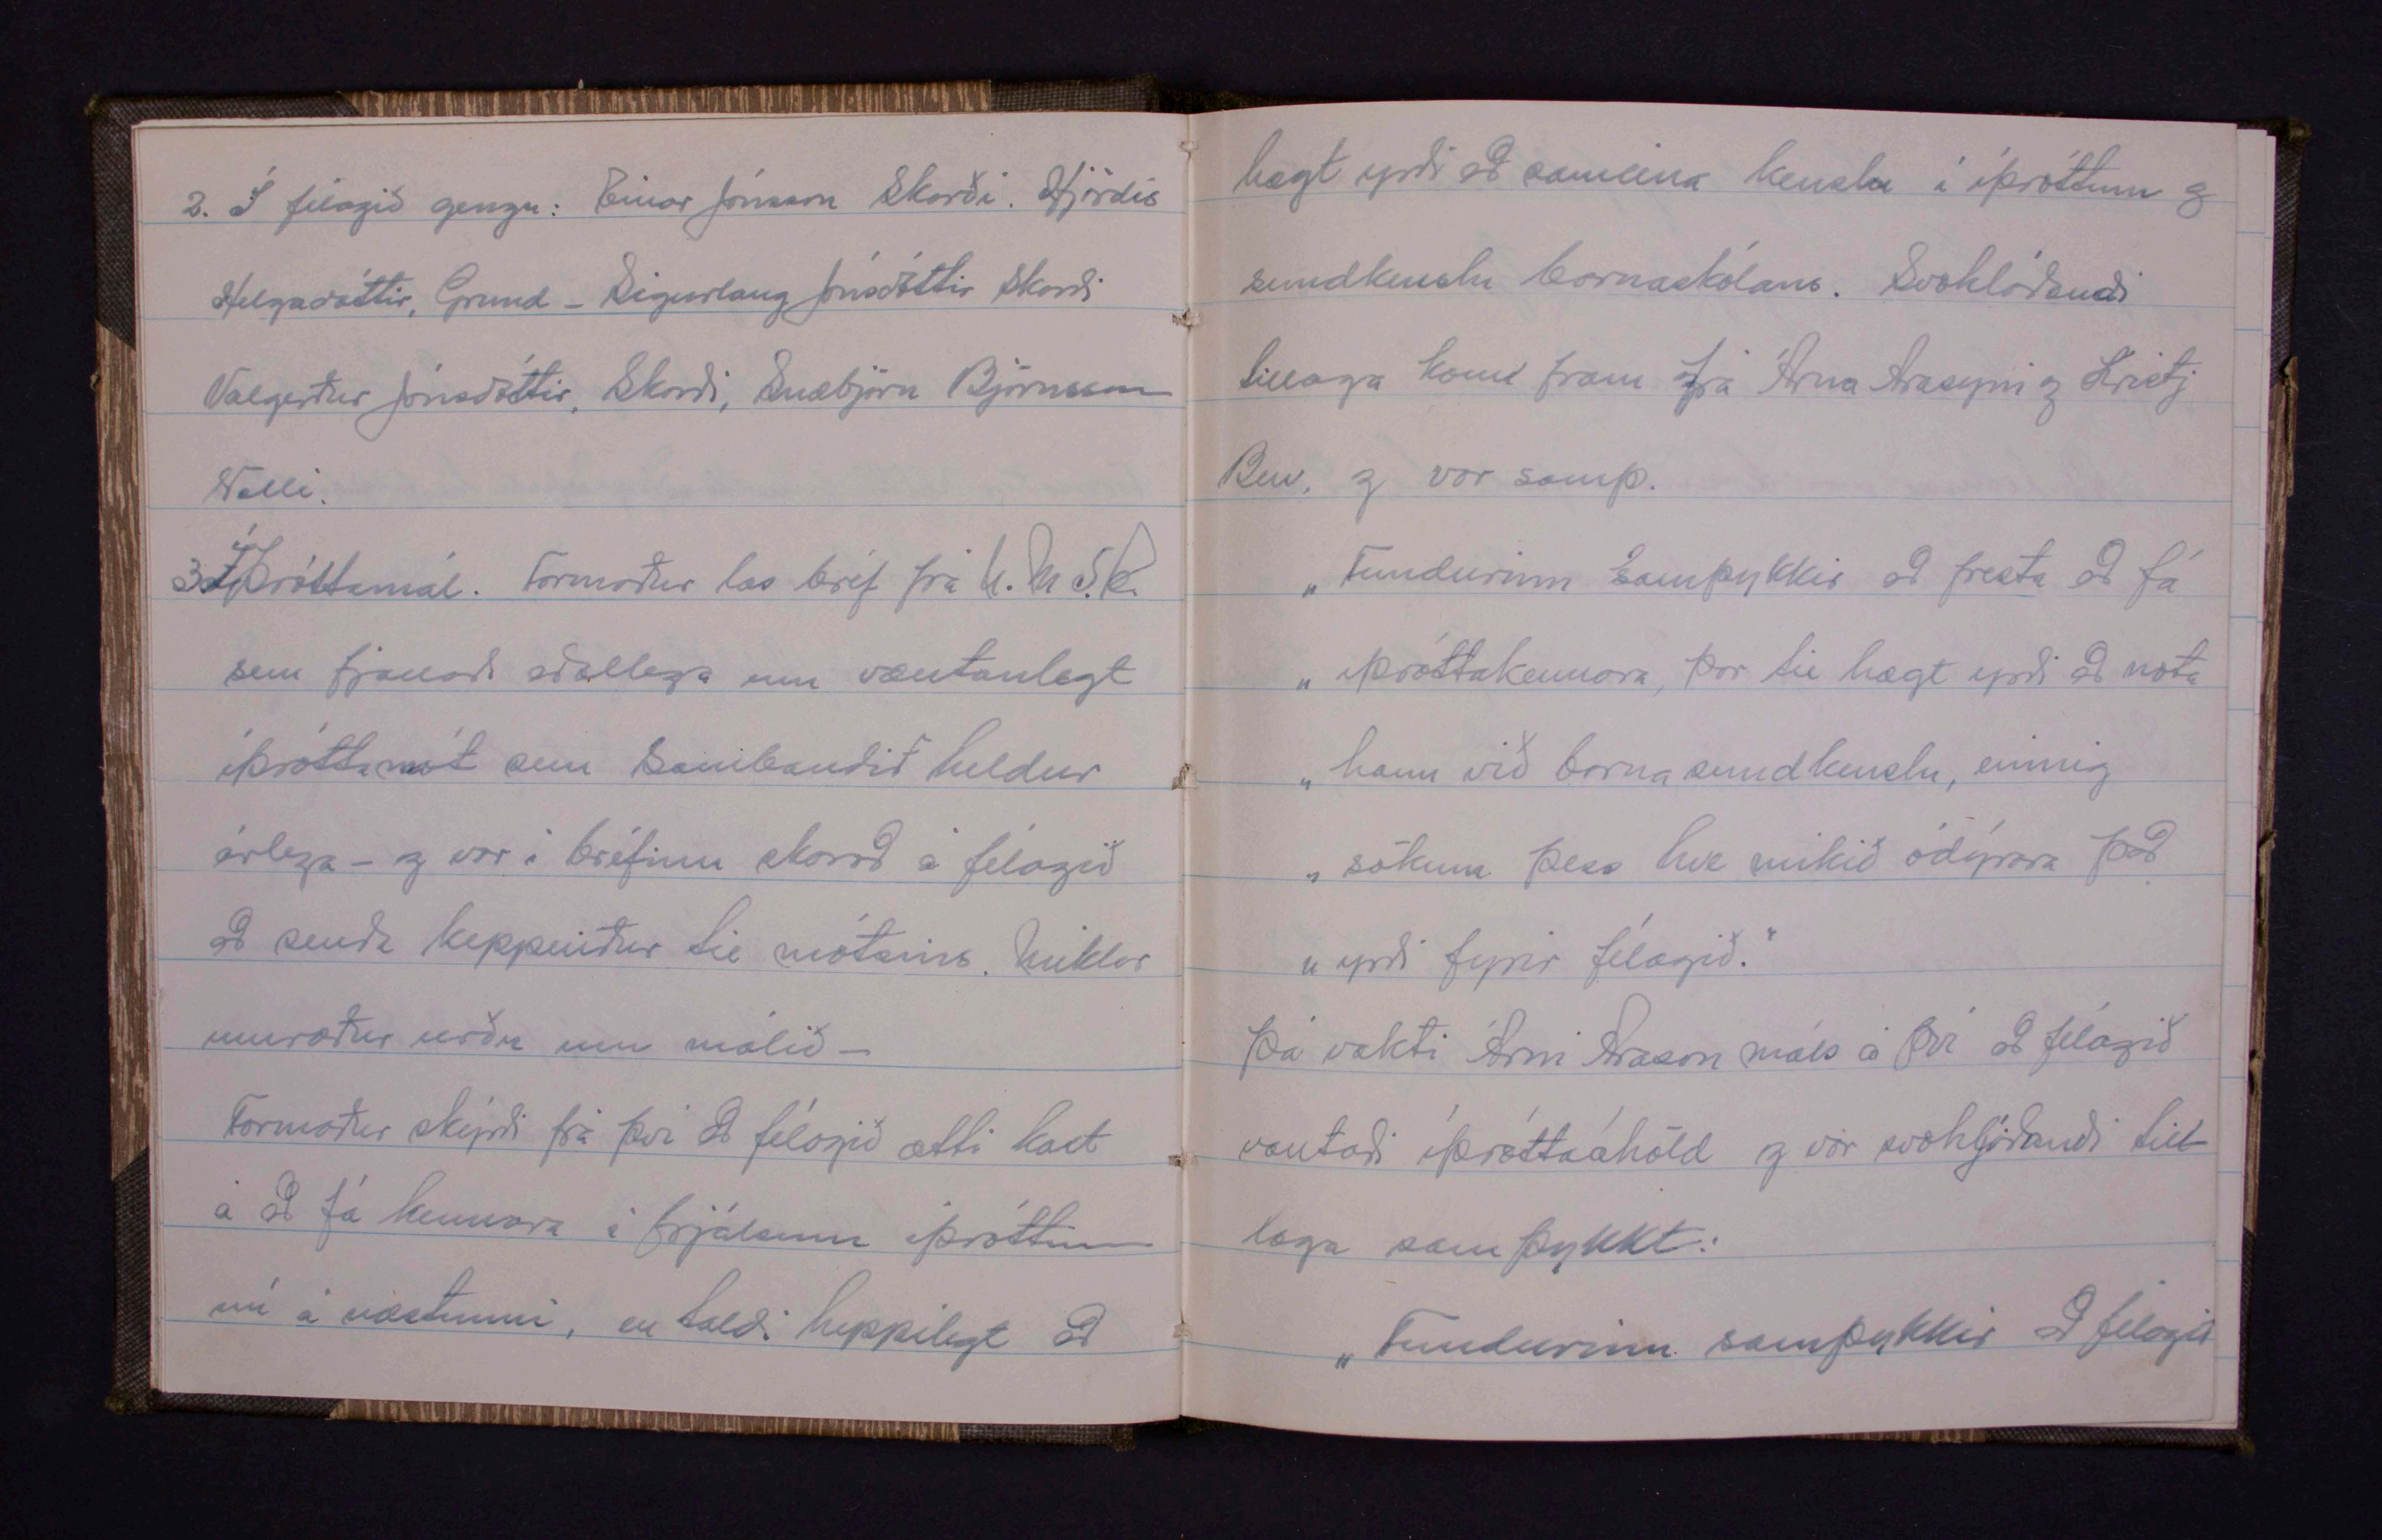 2. Í félagið gengu: Einar Jónsson Skarði. Hjördís
Helgadóttir, Grund – Sigurlaug Jónsdóttir Skarði
Valgerður Jónsdóttir, Skarði, Snæbjörn Björnsson
Nolli.
3. Íþróttamál. Formaður las bréf frá U.M.S.E.
sem fjallaði aðallega um væntanlegt
íþróttamót sem Sambandið heldur
árlega – og var í bréfinu skorað á félagið
að senda keppendur til mótsins. Miklar
umræður urðu um málið –
Formaður skýrði frá því að félagið ætti kost
á að fá kennara í frjálsum íþróttum
nú á næstunni, en taldi heppilegt að
hægt yrði að sameina kenslu í íþróttum og
sundkenslu barnaskólans. Svohlóðandi
tillaga kom fram frá Árna Arasyni og Kristj
Ben. og var samþ.
„Fundurinn samþykkir að fresta að fá
„íþróttakennara, þar til hægt yrði að nota
„hann við barna sundkenslu, einnig
„sökum þess hve mikið ódýrara það
„yrði fyrir félagið."
Þá vakti Árni Arason máls á því að félagið
vantaði íþróttaáhöld og var svohljóðandi til-
laga samþykkt:
„Fundurinn samþykkir að félagið